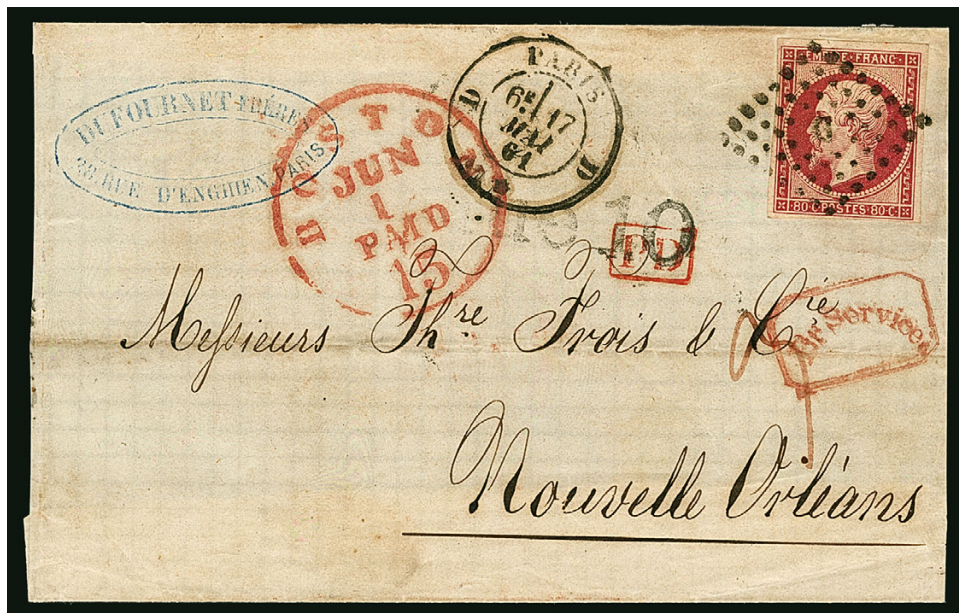 DUFOURNET FRÈRES
RUE D'ENGHIEN, PARIS
BOSTON
JUN
1
PAID
15
PARIS
6E 17
MAI
61
D D
EMPIRE FRANC
80·C POSTES 80·C
10
PD
Br. Service
Messieurs Thre Frois & Cie
Nouvelle Orléans